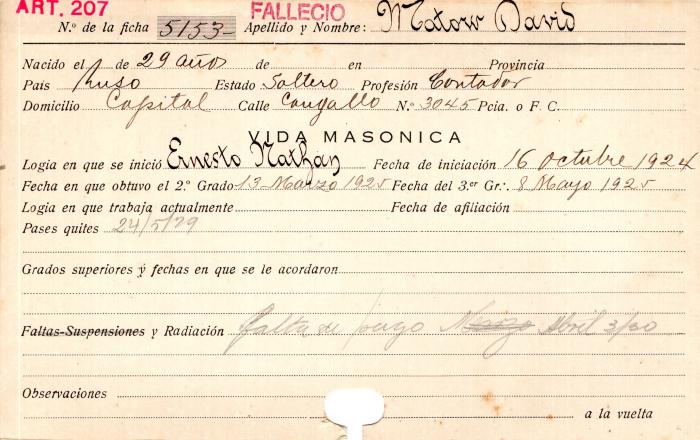 ART. 207
FALLECIO
N.º de la ficha 5153- Apellido y Nombre: Matow David
Nacido el de 29 años de en Provincia
Pais Ruso Estado Soltero Profesión Contador
Domicilio Capital Calle Cangallo N.º 3045 Pcia. o F. C.
VIDA MASONICA
Logia en que se inició Ernesto Nathan Fecha de iniciación 16 Octubre 1924
Fecha en que obtuvo el 2.º Grado 13 Marzo 1925 Fecha del 3.er Gr.·. 8 Mayo 1925
Logia en que trabaja actualmente Fecha de afiliación
Pases quites 24/5/29
Grados superiores y fechas en que se le acordaron
Faltas-Suspensiones y Radiación falta de pago Marzo Abril 3/30
Observaciones
a la vuelta